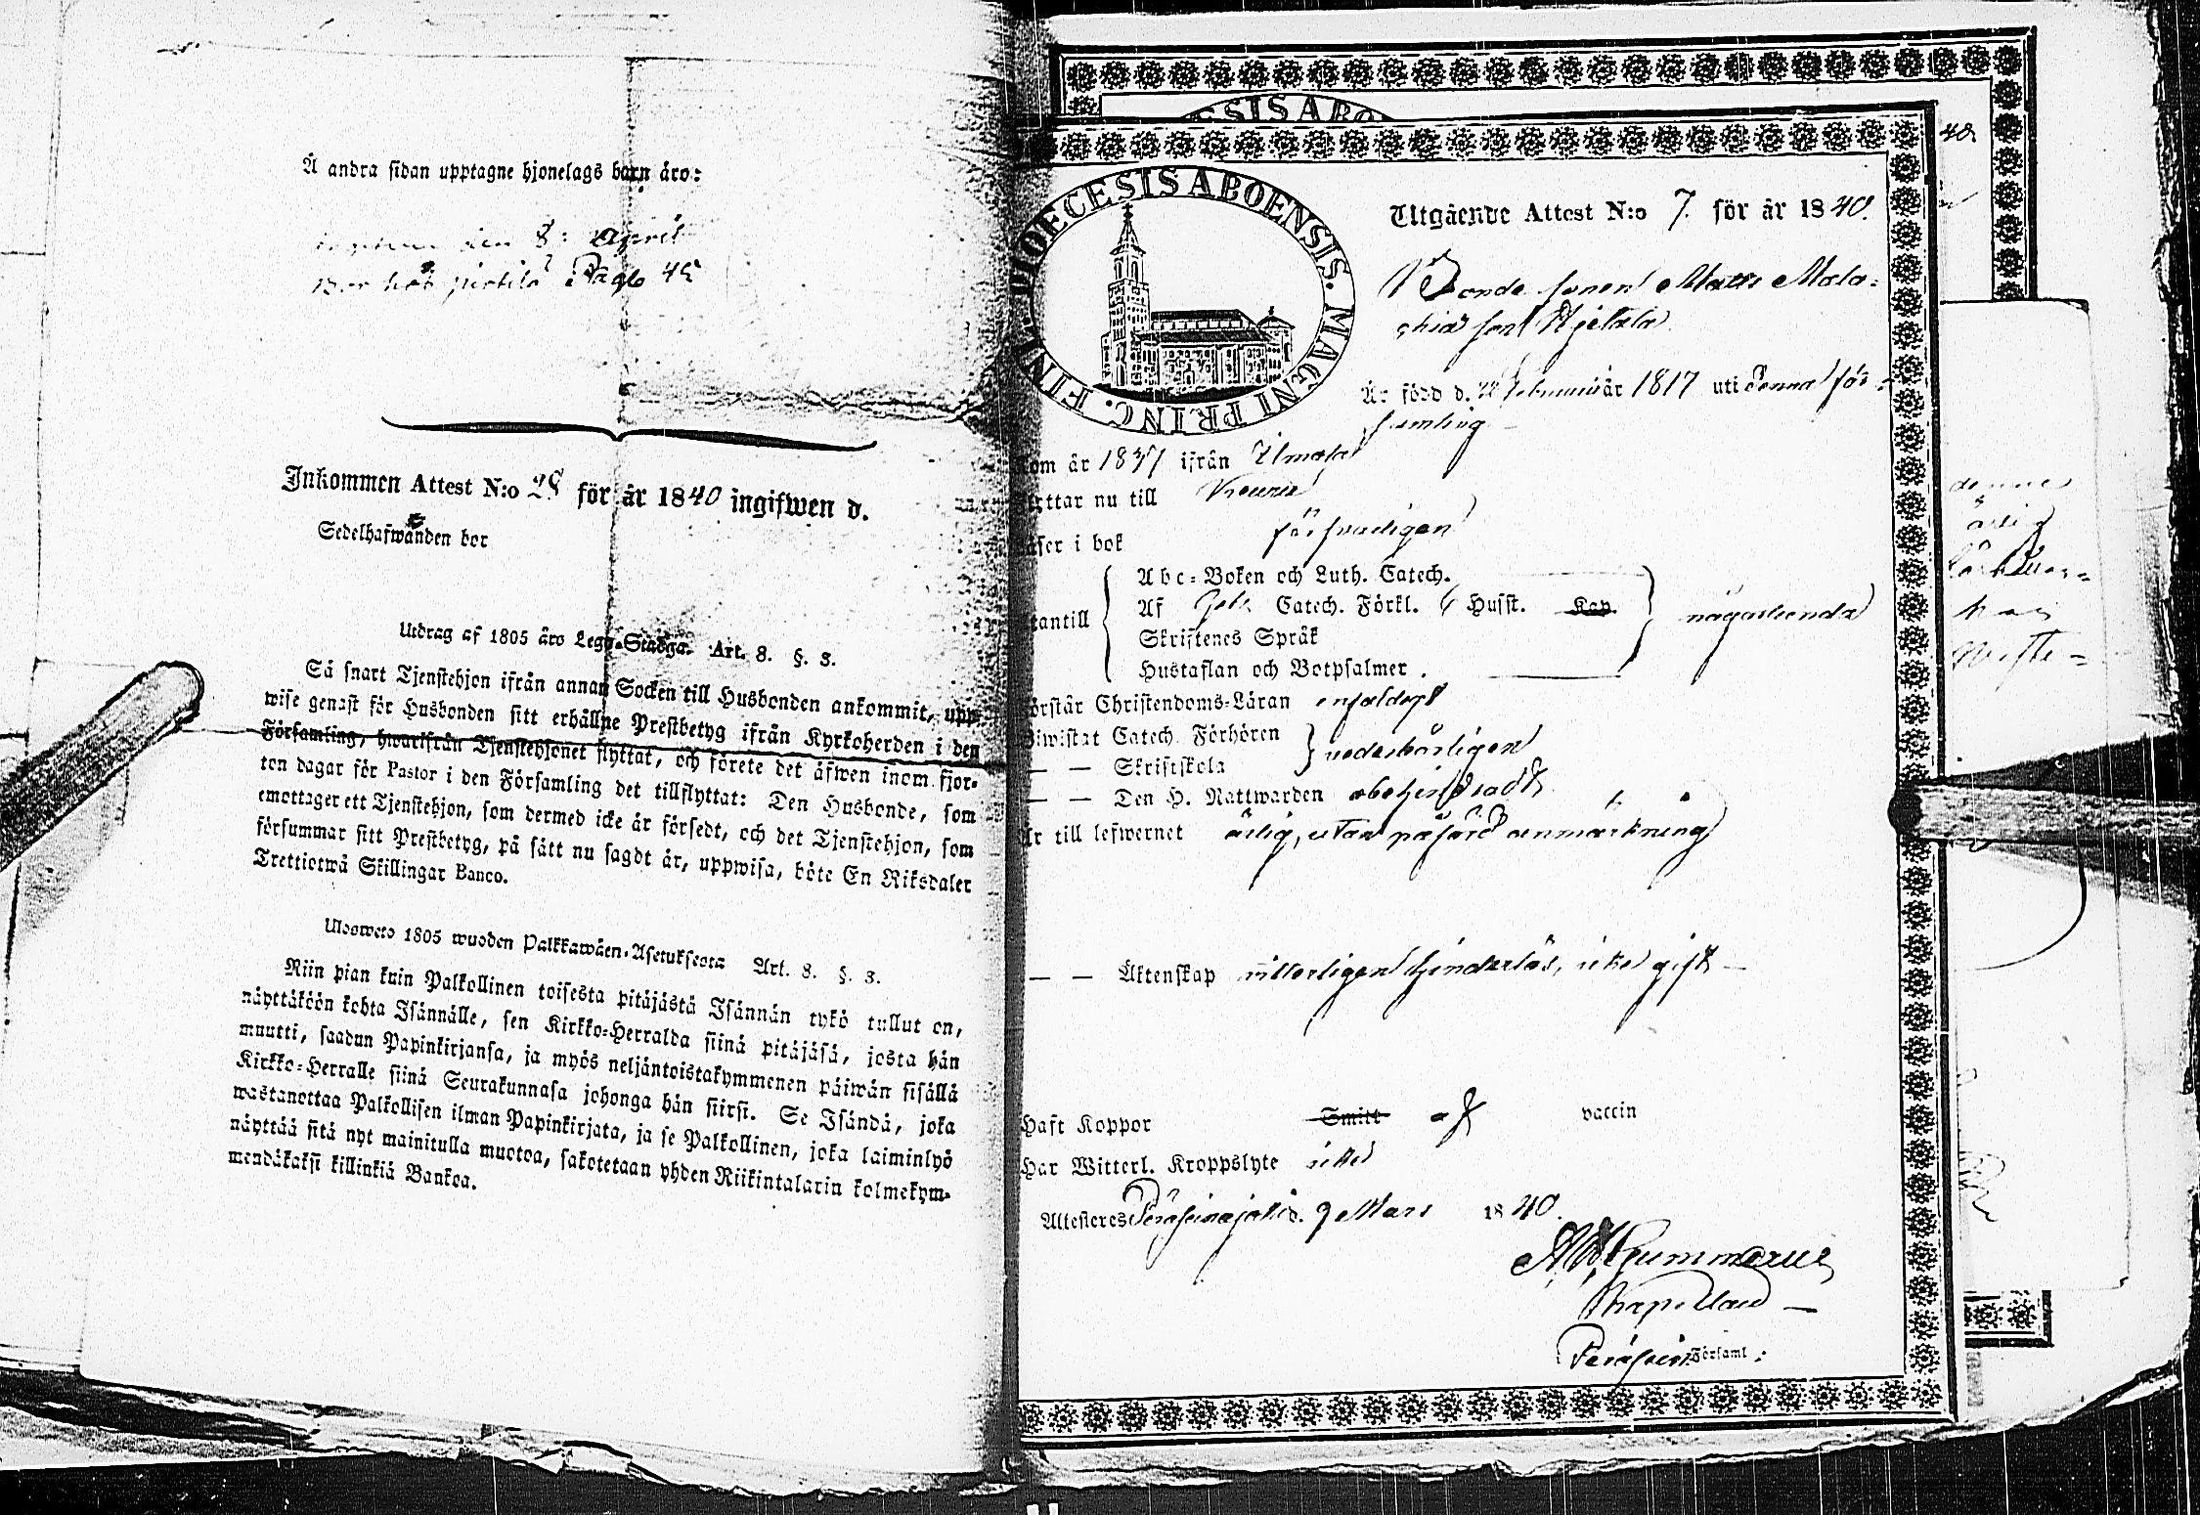 Å andra sidan upptagne hjonelags barn äro:
den 8: April
Bor hos Pertilä i Påglo 45
Inkommen Attest N:o 28 för år 1840 ingifwen d.
Sedelhafwanden bor
Utdrag af 1805 åro Lego-Stadga. Art. 8. §. 3.
Så snart Tjenstehjon ifrån annan Socken till Husbonden ankommit, upp-
wise genast för Husbonden sitt erhållne Prestbetyg ifrån Kyrkoherden i den
Församling, hwarifrån Tjenstehjonet flyttat, och förete det äfwen inom fjor-
ton dagar för Pastor i den Församling det tillflyttat: Den Husbonde, som
emottager ett Tjenstehjon, som dermed icke är försedt, och det Tjenstehjon, som
försummar sitt Prestbetyg, på sätt nu sagdt är, uppwisa, böte En Riksdaler
Trettiotwå Skillingar Banco.
Ulosweto 1805 wuoden Palkkawäen-Asetuksesta Art. 8. §. 3.
Niin pian kuin Palkollinen toisesta pitäjästä Isännän tykö tullut on,
näyttäköön kohta Isännälle, sen Kirkko-Herralda siinä pitäjäsä, josta hän
muutti, saadun Papinkirjansa, ja myös neljäntoistakymmenen päiwän sisällä
Kirkko-Herralle siinä Seurakunnasa johonga hän siirsi. Se Isändä, joka
wastanottaa Palkollisen ilman Papinkirjata, ja se Palkollinen, joka laiminlyö
näyttää sitä nyt mainitulla muotoa, sakotetaan yhden Riikintalarin kolmekym-
mendäkaksi killinkiä Bankoa.
ESIS ABO
DIOECESIS ABOENSIS. MAGNI PRINC. FINL.
Utgående Attest N:o 7. för år 1840.
Bonde sonen Matts Mala-
chias son Hjetala
Är född d. Februarii år 1817 uti denna för-
samling
om år 1837 ifrån Ilmola
yttar nu till Keuru
äser i bok försvarligen
tantill
Abc-Boken och Luth. Catech.
Af Catech. Förkl. Husst. Kap.
Skriftenes Språk
Hustaflan och Botpsalmer.
någorlunda
örstår Christendoms-Läran enfaldigt
iwistat Catech. Förhören
— — Skriftskola
vederbörligen
— — Den H. Nattwarden obehindradt
Är till lefwernet ärlig, utan påförd anmärkning
— — Äktenskap vitterligen hinderlös, icke gift —
Haft Koppor Smitt af vaccin
Har Witterl. Kroppslyte icke
Attesteres Peräseinäjoki d. 9 Mars 1840.
Gummerus
Kapellan —
Peräsein Församl:
40.
denne
ärlig